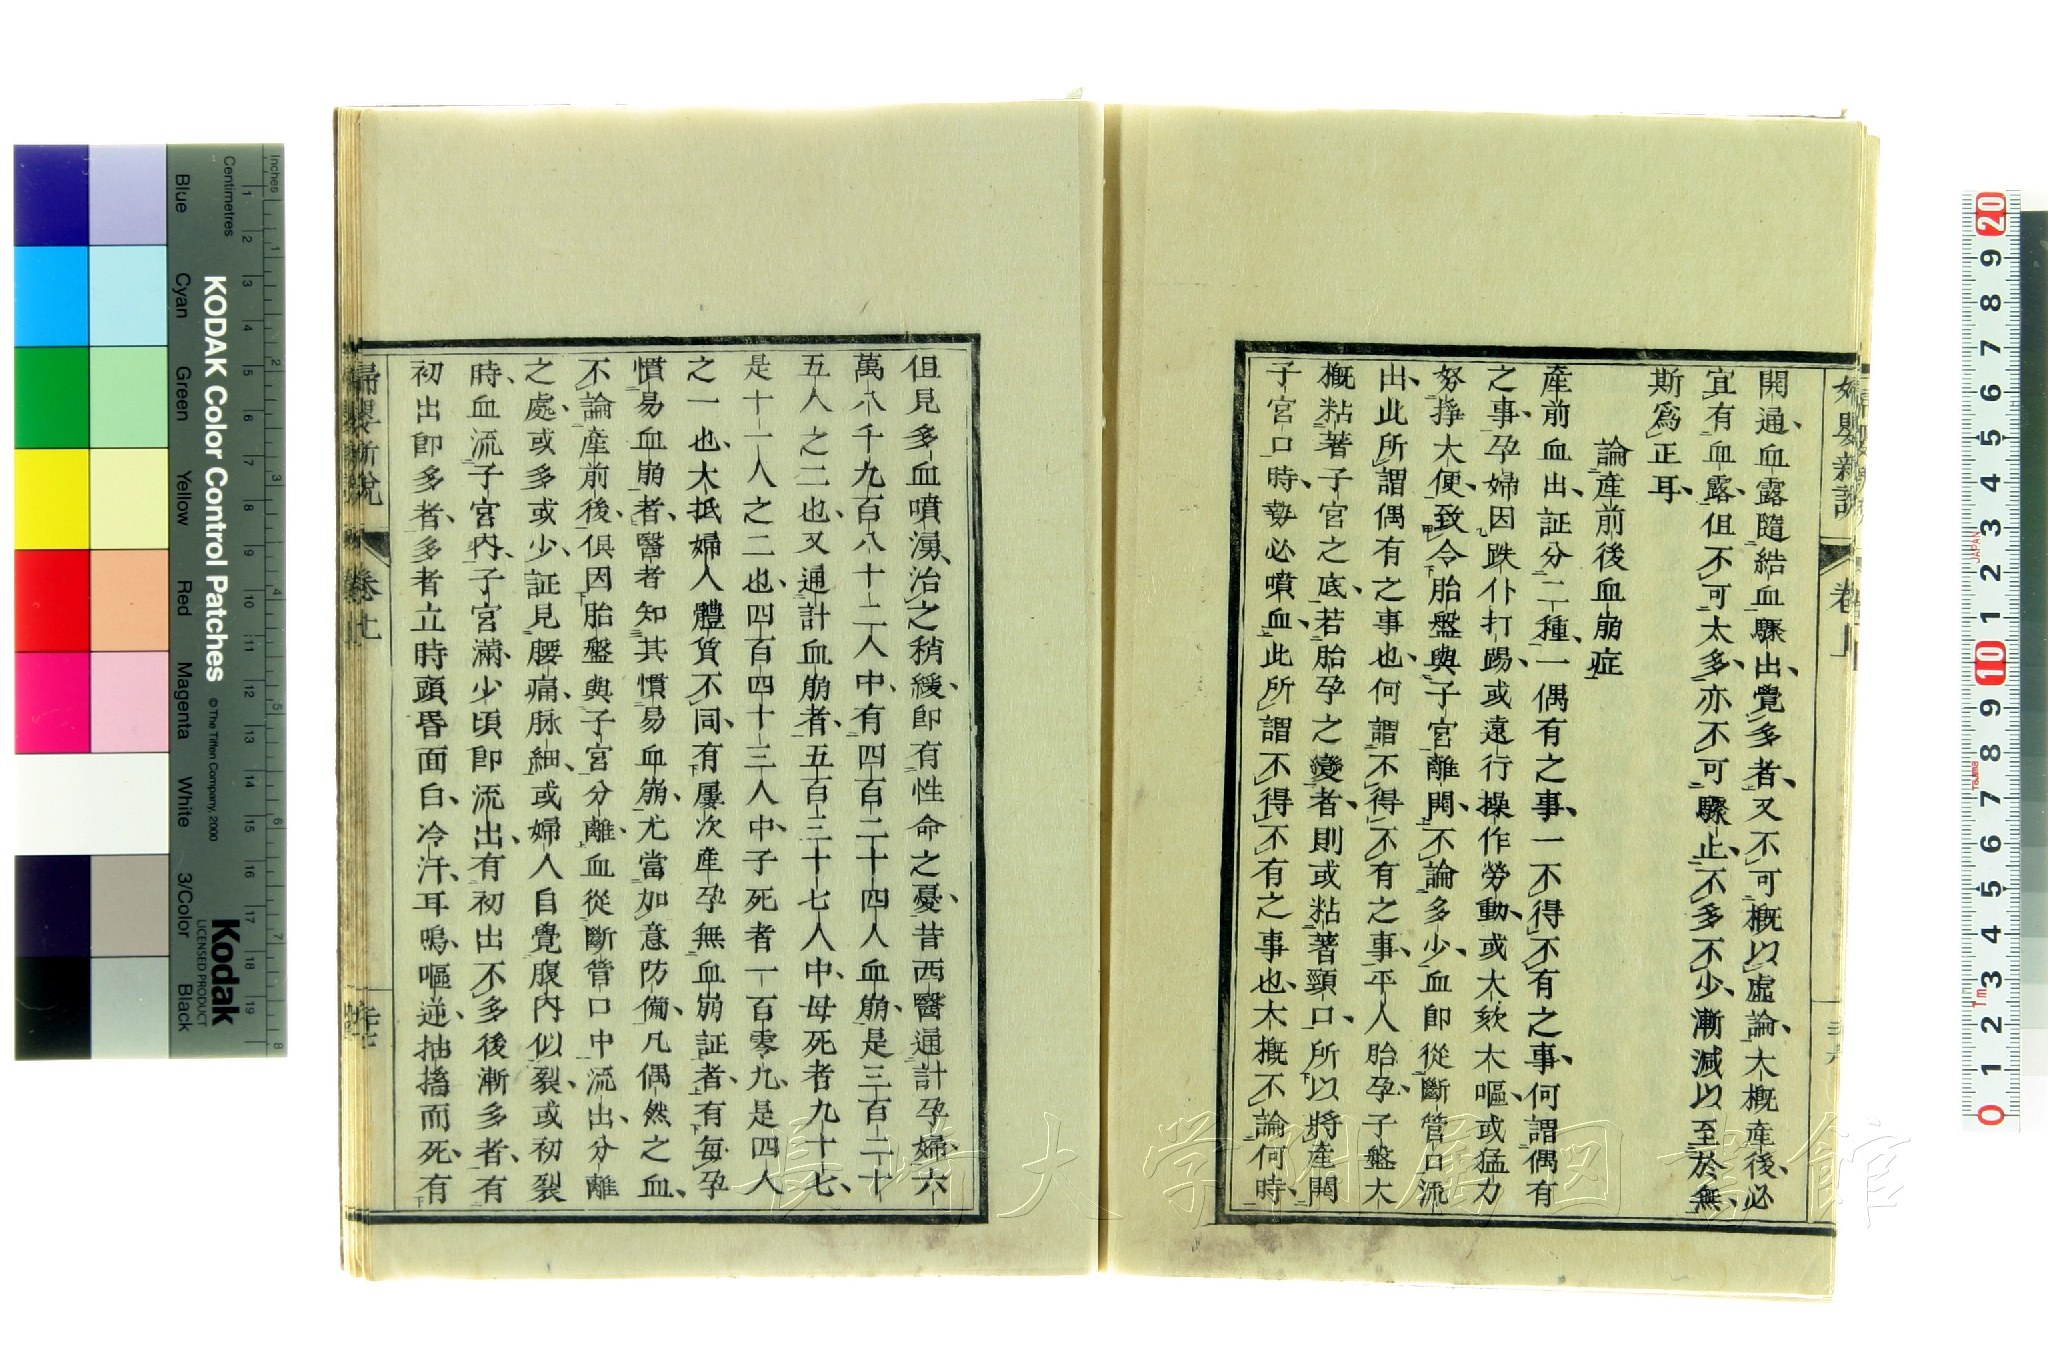 開通血露隨結血驟出覺多者又不可概以虛論大概產後必
宜有血露但不可太多亦不可驟止不多不少漸減以至於無
斯爲正耳
論產前後血崩症
產前血出証分二種一偶有之事一不得不有之事何謂偶有
之事孕婦因跌仆打踢或遠行操作勞動或大欬大嘔或猛力
努掙大便致令胎盤與子宮離開不論多少血卽從斷管口流
出此所謂偶有之事也何謂不得不有之事平人胎孕子盤大
概粘著子宮之底若胎孕之變者則或粘著頸口所以將產開
子宮口時勢必噴血此所謂不得不有之事也大概不論何時
但見多血噴湧治之稍緩卽有性命之憂昔西醫通計孕婦六
萬八千九百八十二人中有四百二十四人血崩是三百二十
五人之二也又通計血崩者五百三十七人中母死者九十七
是十一人之二也四百四十三人中子死者一百零九是四人
之一也大抵婦人體質不同有屢次產孕無血崩証者有每孕
慣易血崩者醫者知其慣易血崩尤當加意防備凡偶然之血
不論產前後俱因胎盤與子宮分離血從斷管口中流出分離
之處或多或少証見腰痛脉細或婦人自覺腹内似裂或初裂
時血流子宮內子宮滿少頃卽流出有初出不多後漸多者有
初出卽多者多者立時頭昏面白冷汗耳鳴嘔逆抽搐而死有
婦嬰新說
卷上
婦嬰新說
長崎大学附属図書館
KODAK Color Control Patches
© The Tiffen Company, 2000
Kodak
LICENSED PRODUCT
Inches
Centimetres
Blue
Cyan
Green
Yellow
Red
Magenta
White
3/Color
Black
1 2 3 4 5 6 7 8 9 10 11 12 13 14 15 16 17 18 19
1 2 3 4 5 6 7 8
20 9 8 7 6 5 4 3 2 1 10 9 8 7 6 5 4 3 2 1 0
JAPAN
1m